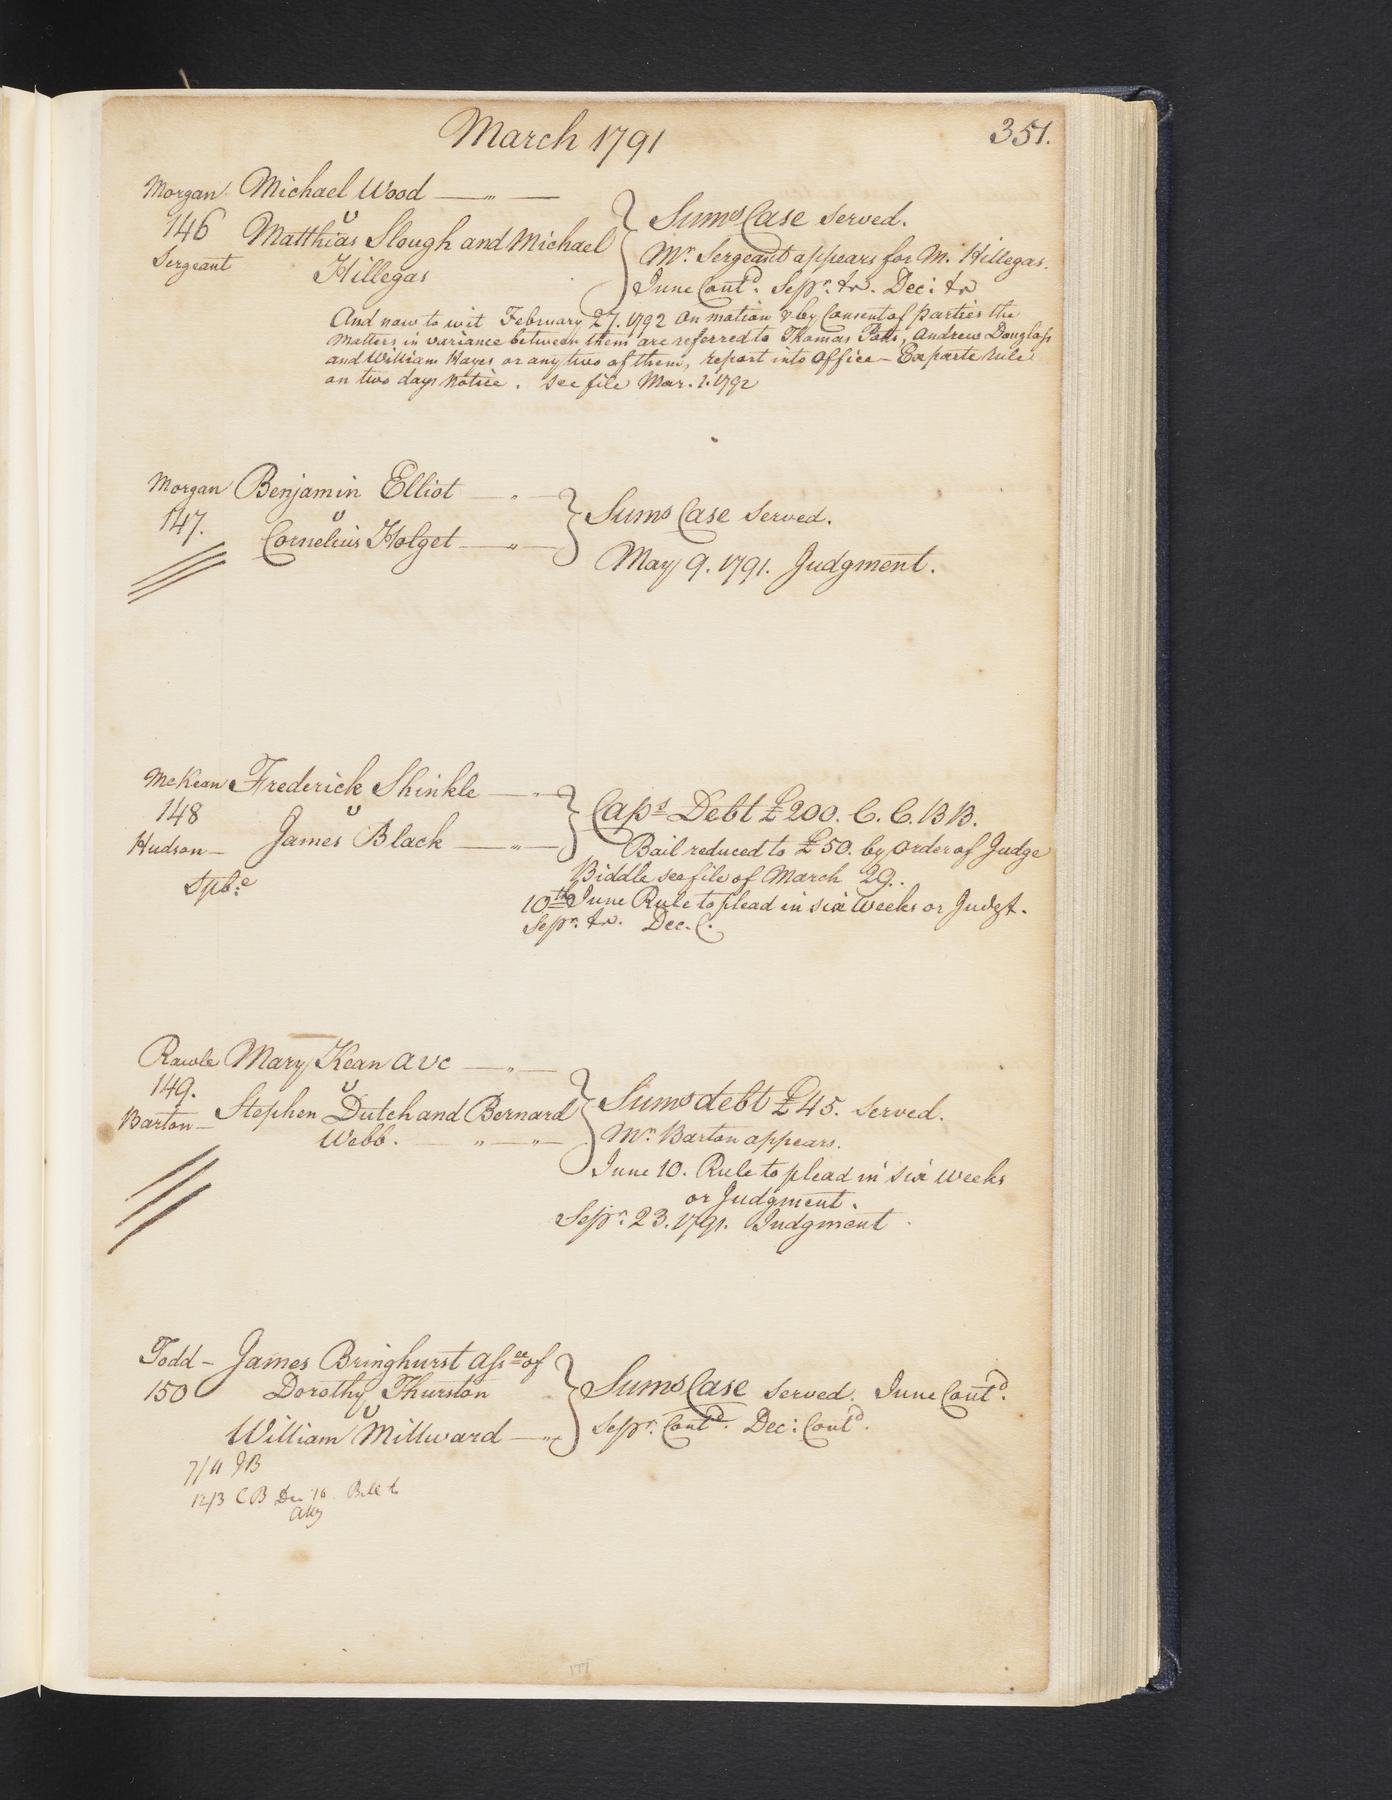 March 1791
351.
Morgan Michael Wood
146 v
Sergeant Matthias Slough and Michael
Hillegas
Sums Case served.
Mr. Sergeant appears for M. Hillegas.
June Contd. Sepr. tr. Dec: tr
And now to wit February 27. 1792 On motion & by Consent of parties the
matters in variance between them are referred to Thomas Potts, Andrew Douglass
and William Hayes or any two of them, report into office – Ex parte rule
on two days notice. see file Mar. 1. 1792
Morgan Benjamin Elliot
147. v
Cornelius Holget
Sums Case served.
May 9. 1791. Judgment.
McKean Frederick Shinkle
148 v
Hudson – James Black
Caps Debt £200. C. C. BB.
Bail reduced to £50. by order of Judge
Biddle see file of March 29.
10th June Rule to plead in six weeks or Judgt.
Sepr. tr. Dec. C.
Rawle Mary Kean
149. v
Barton – Stephen Dutch and Bernard
Webb.
Sums debt £45. served.
Mr. Barton appears.
June 10. Rule to plead in six weeks
or Judgment.
Sepr. 23. 1791. Judgment
Todd – James Bringhurst Assee of
150 Dorothy Thurston
v
William Millward
Sums Case served. June Contd.
Sepr. Contd. Dec: Contd.
7/11 JB
12/3 CB